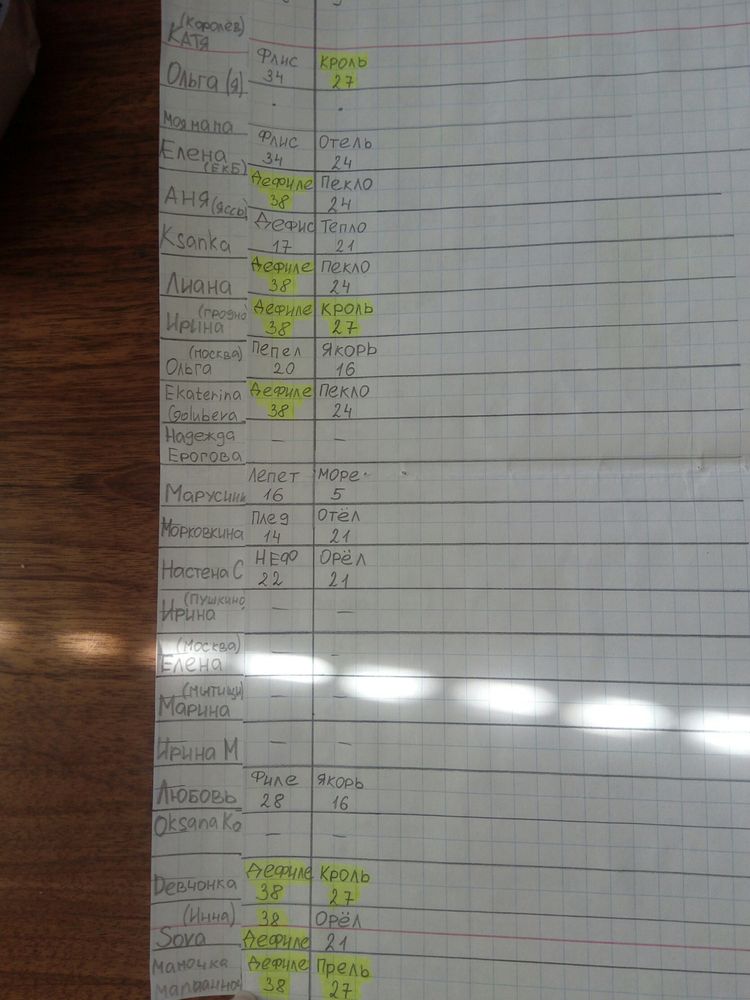 (Королёв)
Катя
Флис Кроль
Ольга (я) 34 27
Моя мапа
Флис Отель
Елена 34 24
(ЕКБ)
Дефиле Пекло
Аня (Яссь) 38 24
Дефис Тепло
Ksanka 17 21
Дефиле Пекло
Лиана 38 24
(Гродно) Дефиле Кроль
Ирина 38 27
(Москва) Пепел Якорь
Ольга 20 16
Ekaterina Дефиле Пекло
Golubeva 38 24
Надежда — —
Ерогова
Лепет Море
Марусини 16 5
Плед Отёл
Морковкина 14 21
НЕФ Орёл
Настена С 22 21
(Пушкино)
Ирина — —
(Москва)
Елена — —
(Мытищи)
Марина — —
Ирина М — —
Филе Якорь
Любовь 28 16
Oksana Ko — —
Дефиле Кроль
Dевчонка 38 27
(Инна) 38 Орёл
Sova Дефиле 21
маночка Дефиле Прель
38 27